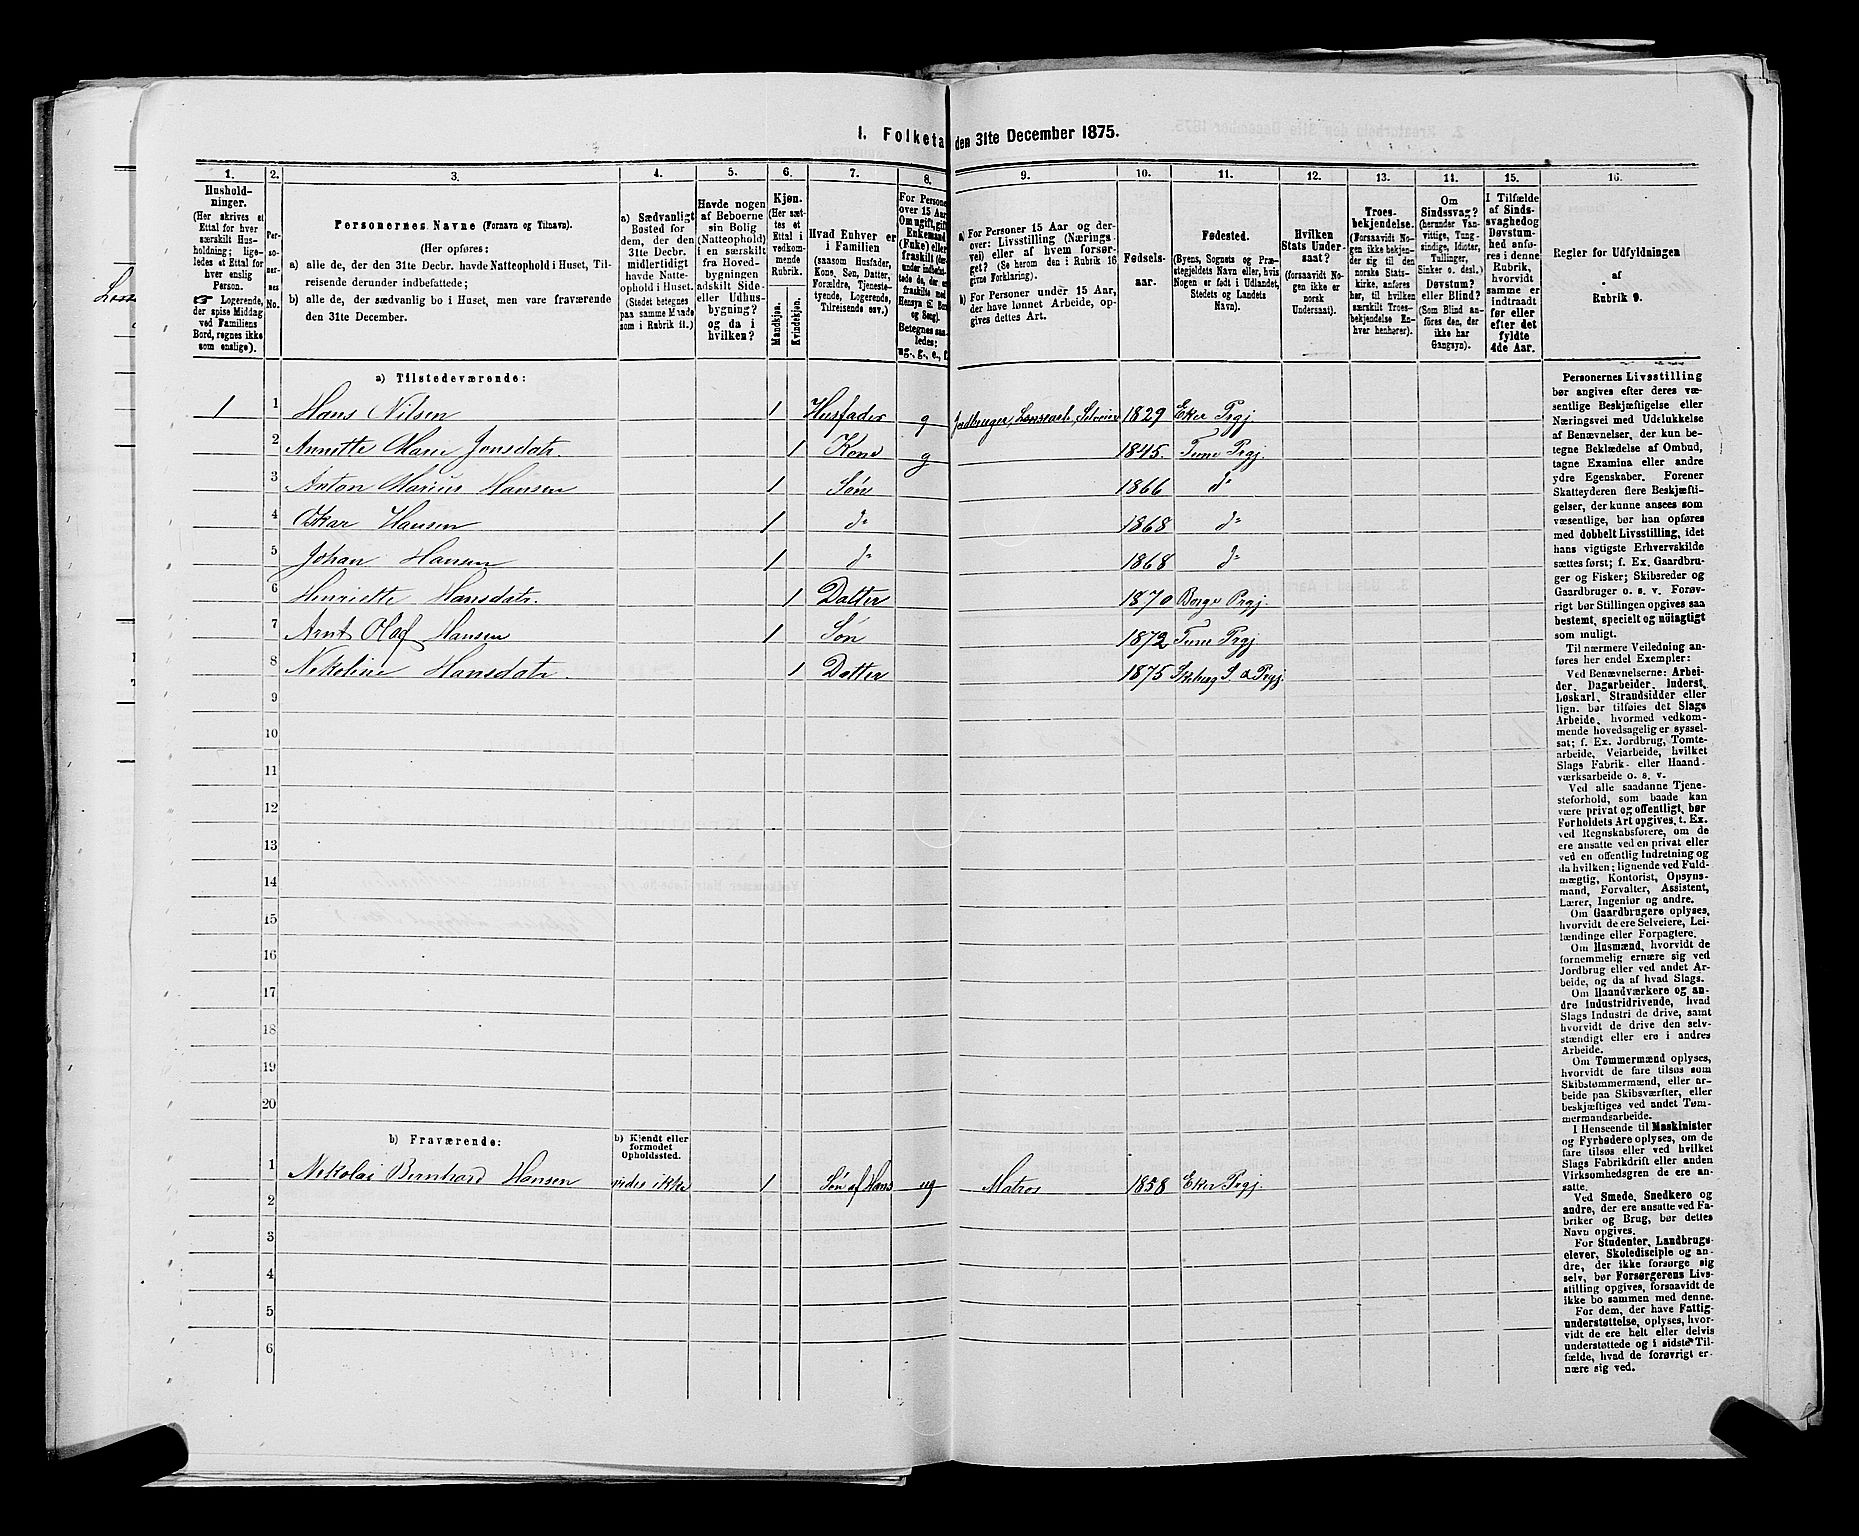 1. Folketa den 31te December 1875.
1.
Hushold-
ninger.
(Her skrives et
Ettal for hver
særskilt Hus-
holdning; lige-
ledes et Ettal for
hver enslig
Person.
☞ Logerende,
der spise Middag
ved Familiens
Bord, regnes ikke
som enslige).
2.
Per-
so-
ner-
nes
No.
3.
Personernes Navne (Fornavn og Tilnavn).
(Her opføres;
a) alle de, der den 31te Decbr. havde Natteophold i Huset, Til-
reisende derunder indbefattede;
b) alle de, der sædvanlig bo i Huset, men vare fraværende
den 31te December.
4.
a) Sædvanligt
Bosted for
dem, der den
31te Decbr.
midlertidigt
havde Natte-
ophold i Huset.
(Stedet betegnes
paa samme Maade
som i Rubrik 11.)
5.
Havde nogen
af Beboerne
sin Bolig
(Natteophold)
i en særskilt
fra Hoved-
bygningen
adskilt Side-
eller Udhus-
bygning?
og da i
hvilken?
6.
Kjøn.
(Her sæt-
tes et
Ettal i
vedkom-
mende
Rubrik.
Mandkjøn.
Kvindekjøn.
7.
Hvad Enhver er
i Familien
(saasom Husfader,
Kone, Søn, Datter,
Forældre, Tjeneste-
tyende, Logerende,
Tilreisende osv.)
8.
For Persone
over 15 Aar
Om ugift, gift
Enkemand
(Enke) eller
fraskilt (der-
under indbefat-
tede de, der er
fraskilte med
Hensyn til Bord
og Seng).
Betegnes saa-
ledes;
ug., g., e., f.
9.
a) For Personer 15 Aar og der-
over: Livsstilling (Nærings-
vei) eller af hvem forsør-
get? (Se herom den i Rubrik 16
givne Forklaring).
b) For Personer under 15 Aar,
har de lønnet Arbeide, op-
gives dettes Art.
10.
Fødsels-
aar.
11.
Fødested.
(Byens, Sognets og Præ-
stegjeldets Navn eller, hvis
Nogen er født i Udlandet,
Stedets og Landets
Navn).
12.
Hvilken
Stats Under-
saat?
(forsaavidt No-
gen ikke er
norsk
Undersaat).
13.
Troes-
bekjendelse.
(Forsaavidt No-
gen ikke bekjen-
der sig til den
norske Stats-
kirke, anføres
her, til hvilken
særskilt Troes-
bekjendelse En-
hver henhører).
14.
Om
Sindssvag?
(herunder Van-
vittige, Tung-
sindige, Idioter,
Tullinger,
Sinker o. desl.)
Døvstum?
eller Blind?
(Som Blind an-
føres den, der
ikke har
Gangsyn).
15.
I Tilfælde
af Sinds-
svaghed og
Døvstum-
hed anfø-
res i denne
Rubrik,
hvorvidt
samme er
indtraadt
før eller
efter det
fyldte
4de Aar.
16.
Regler for Udfyldningen
af
Rubrik 9.
a) Tilstedeværende:
1 1 Hans Nilsen 1 Husfader g Jordbruger, Landsarb., Selveier 1829 Eker Prgj
2 Annette Marie Jonsdatr 1 Kone g 1845. Tune Prgj.
3 Anton Marius Hansen 1 Søn 1866 d°
4 Oskar Hansen 1 d° 1868 d°
5 Johan Hansen 1 d° 1868 d°
6 Henriette Hansdatr. 1 Datter 1870 Borge Prgj.
7 Arnt Olaf Hansen 1 Søn 1872 Tune Prgj
8 Nekoline Hansdatr 1 Datter 1875 S. & Prgj.
9
10
11
12
13
14
15
16
17
18
19
20
b) Fraværende:
b) Kjendt eller
formodet
Opholdssted.
1 Nekolai Bernhard Hansen vides ikke 1 Søn af Hans ug Matros 1858 Eker Prgj.
2
3
4
5
6
Personernes Livsstilling
bør angives efter deres væ-
sentlige Beskjæftigelse eller
Næringsvei med Udelukkelse
af Benævnelser, der kun be-
tegne Beklædelse af Ombud,
tagne Examina eller andre
ydre Egenskaber. Forener
Skatteyderen flere Beskjæfti-
gelser, der kunne ansees som
væsentlige, bør han opføres
med dobbelt Livsstilling, idet
hans vigtigste Erhvervskilde
sættes først; f. Ex. Gaardbru-
ger og Fisker; Skibsreder og
Gaardbruger o. s. v. Forøv-
rigt bør Stillingen opgives saa
bestemt, specielt og nøiagtigt
som muligt.
Til nærmere Veiledning an-
føres her endel Exempler:
Ved Benævnelserne: Arbei-
der, Dagarbeider, Inderst,
Løskarl, Strandsidder eller
lign. bør tilføies det Slags
Arbeide, hvormed vedkom-
mende hovedsagelig er syssel-
sat; f. Ex. Jordbrug, Tomte-
arbeide, Veiarbeide, hvilket
Slags Fabrik- eller Haand-
værksarbeide o. s. v.
Ved alle saadanne Tjene-
steforhold, som baade kan
være privat og offentligt, bør
Forholdets Art opgives, t. Ex.
ved Regnskabsførere, om de
ere ansatte ved en privat eller
ved en offentlig Indretning og
da hvilken; lignende ved Fuld-
mægtig, Kontorist, Opsyns-
mand, Forvalter, Assistent,
Lærer, Ingeniør og andre.
Om Gaardbrugere oplyses,
hvorvidt de ere Selveiere, Lei-
lændinge eller Forpagtere.
Om Husmænd, hvorvidt de
fornemmelig ernære sig ved
Jordbrug eller ved andet Ar-
beide, og da af hvad Slags.
Om Haandværkere og an-
dre Industridrivende, hvad
Slags Industri de drive, samt
hvorvidt de drive den selv-
stændigt eller ere i andres
Arbeide.
Om Tømmermænd oplyses,
hvorvidt de fare tilsøs som
Skibstømmermænd, eller ar-
beide paa Skibsværfter, eller
beskjæftiges ved andet Tøm-
mermandsarbeide.
I Henseende til Maskinister
og Fyrbødere oplyses, om de
fare tilsøs eller ved hvilket
Slags Fabrikdrift eller anden
Virksomhedsgren de ere an-
satte.
Ved Smede, Snedkere og
andre, der ere ansatte ved Fa-
briker og Brug, bør dettes
Navn opgives.
For Studenter, Landbrugs-
elever, Skoledisciple og an-
dre, der ikke forsørge sig
selv, bør Forsørgerens Livs-
stilling opgives, forsaavidt de
ikke bo sammen med denne.
For dem, der have Fattig-
understøttelse, oplyses, hvor-
vidt de ere helt eller delvis
understøttede og i sidste Til-
fælde, hvad de forøvrigt er-
nære sig ved.